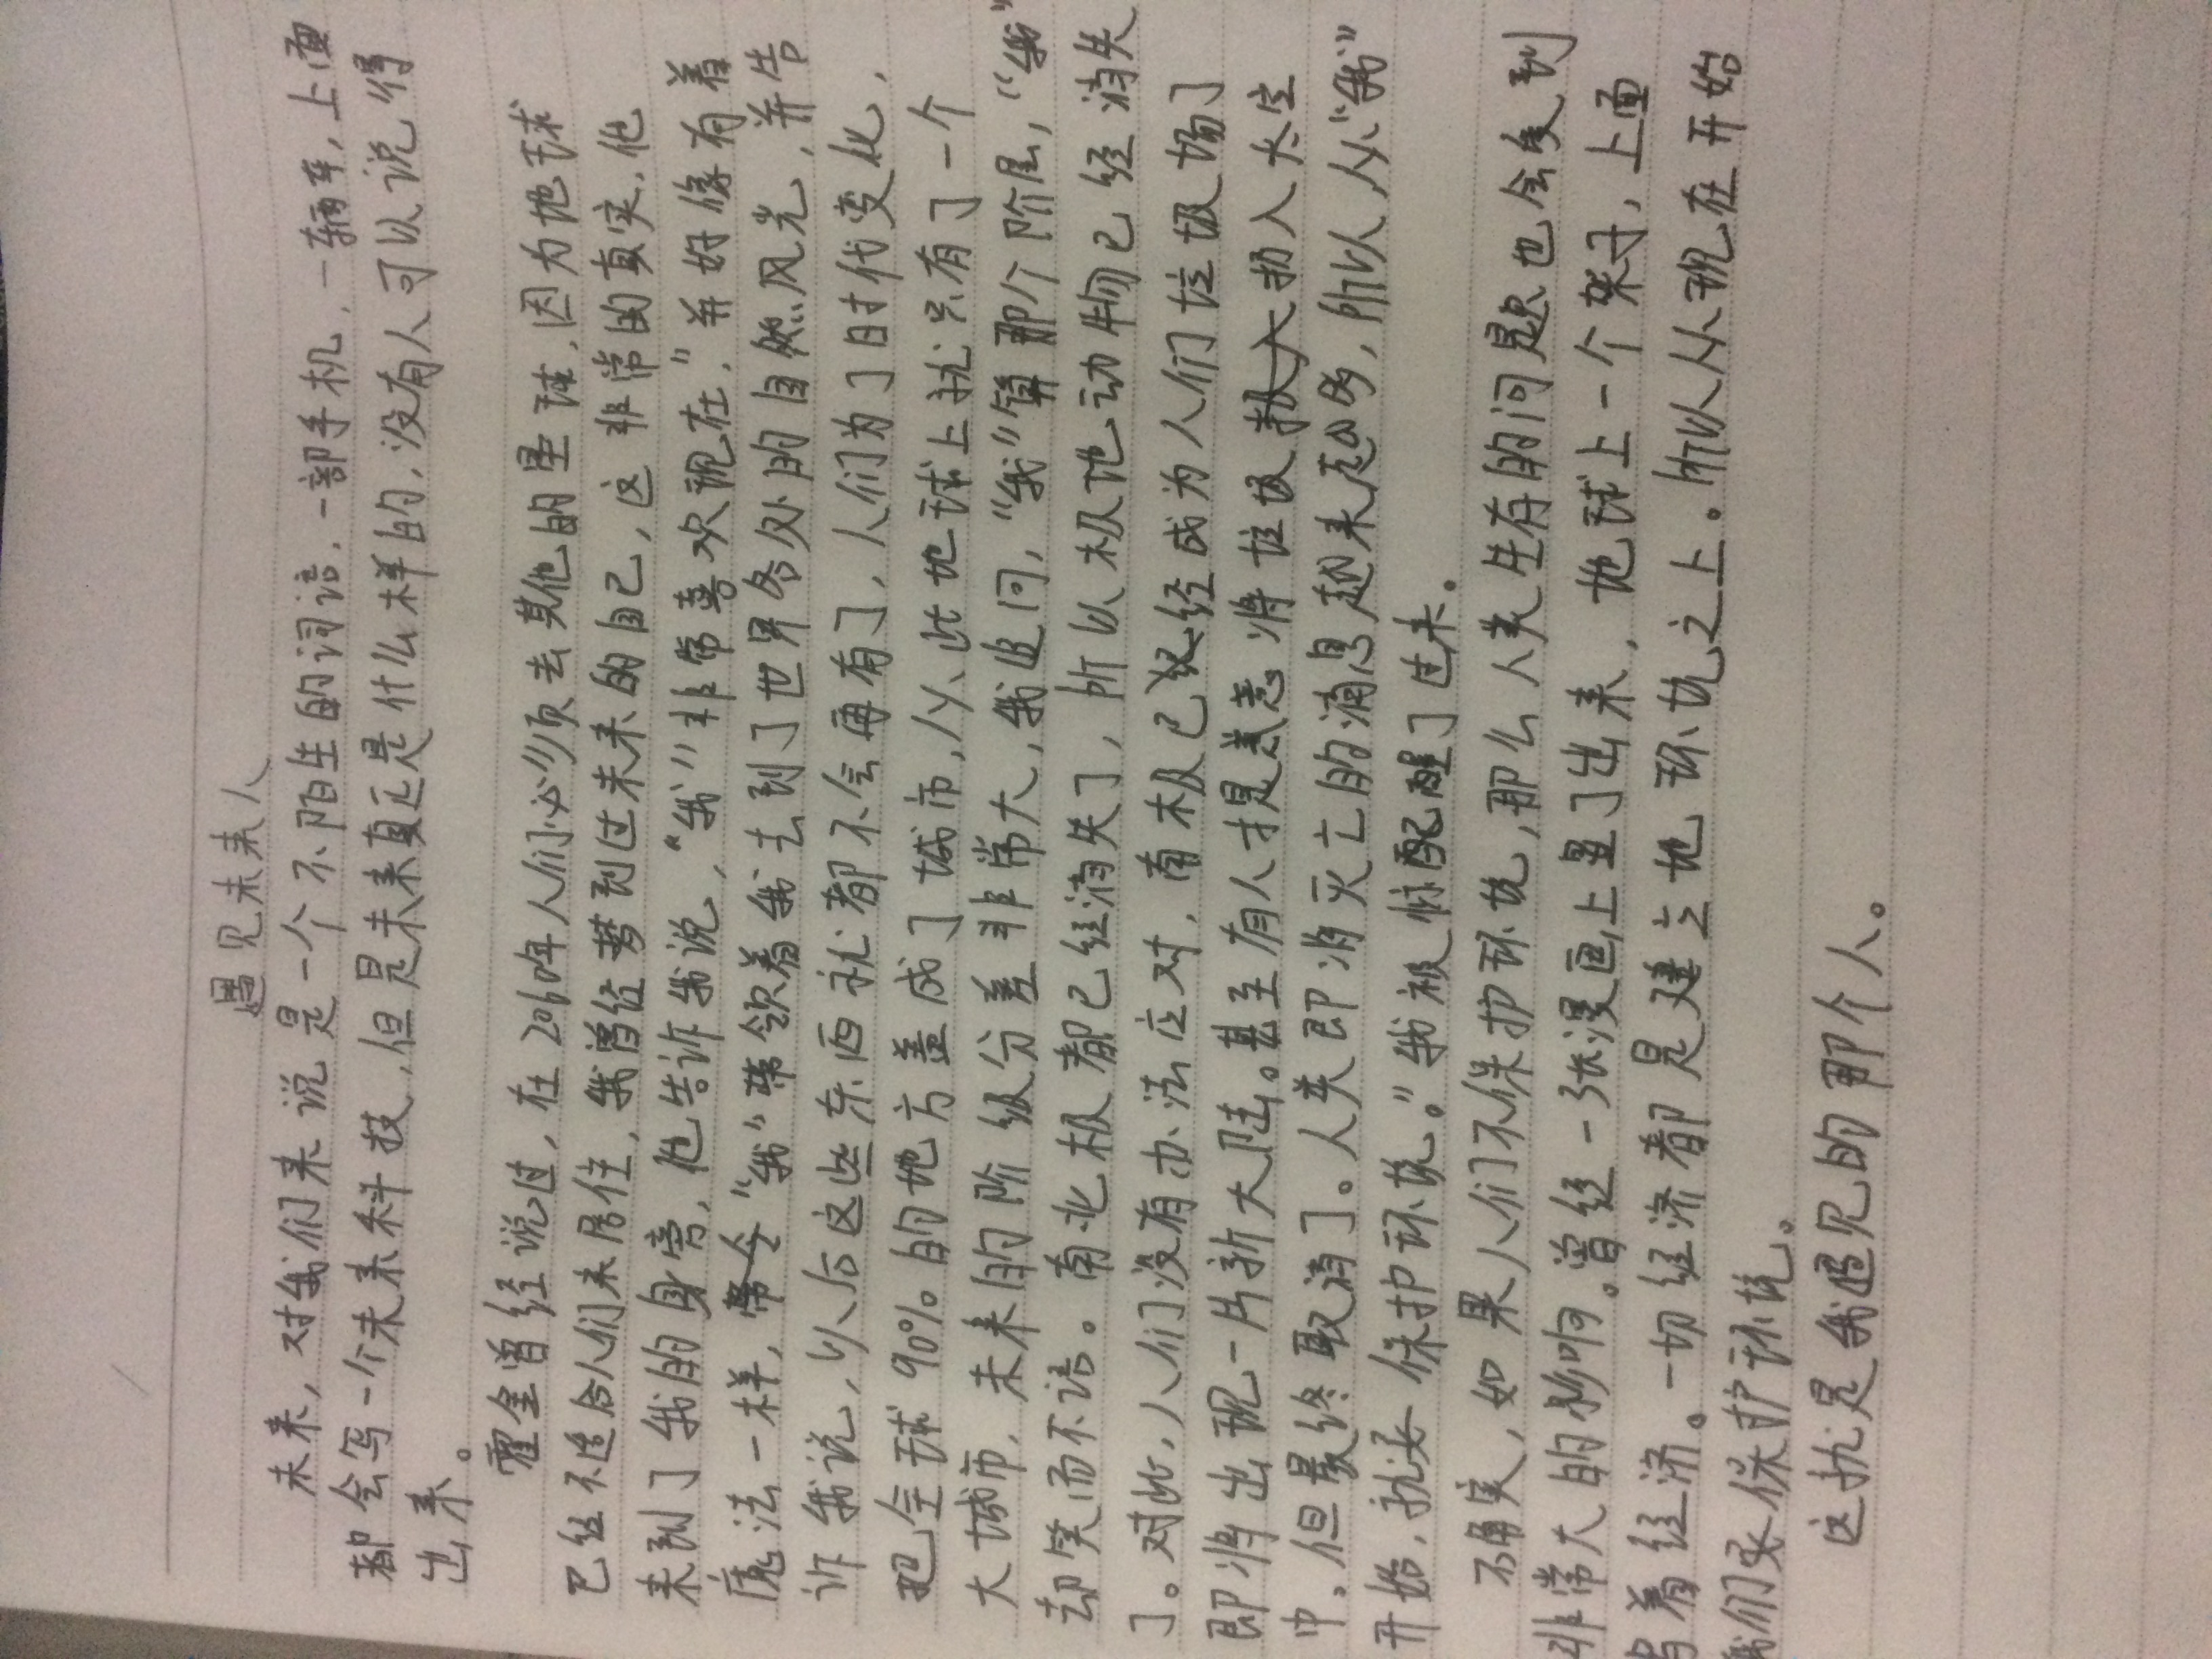 遇见未来人
未来，对我们来说是一个不陌生的词语，一部手机，一辆车，上面
都会写一个未来科技，但是未来真正是什么样的，没有人可以说得
出来。
霍金曾经说过，在2060年人们必须去其他的星球，因为地球
已经不适合人们来居住，我曾经梦到过未来的自己，这非常的真实，他
来到了我的身旁，他告诉我说，“我”非常喜欢现在，”并好像有着
魔法一样，“我”带领着我去到了世界各处的自然风光，并告
诉我说，以后这些东西就都不会再有了，人们为了时代变化，
把全球90%的地方盖成了城市，从此地球上就只有了一个
大城市，未来的阶级分差非常大，我追问，“我”算那个阶层，“我”
却笑而不语。南北极都已经消失了，所以极地动物已经消失
了。对此，人们没有办法应对，南极已经成为人们垃圾场了
即将出现一片新大陆。甚至有人才是恙恙将垃圾扔入太空
中，但最终取消了。人类即将灭亡的消息越来越多，所以从“我”
开始，就要保护环境。”我被惊醒了过来。
不确实，如果人们不保护环境，那么人类生存的问题也会受到
非常大的影响。曾经一张漫画上显了出来，地球上一个架子，上面
写着经济。一切经济都是建立地环境之上。所以从现在开始
我们要保护环境。
这就是我遇见的那个人。